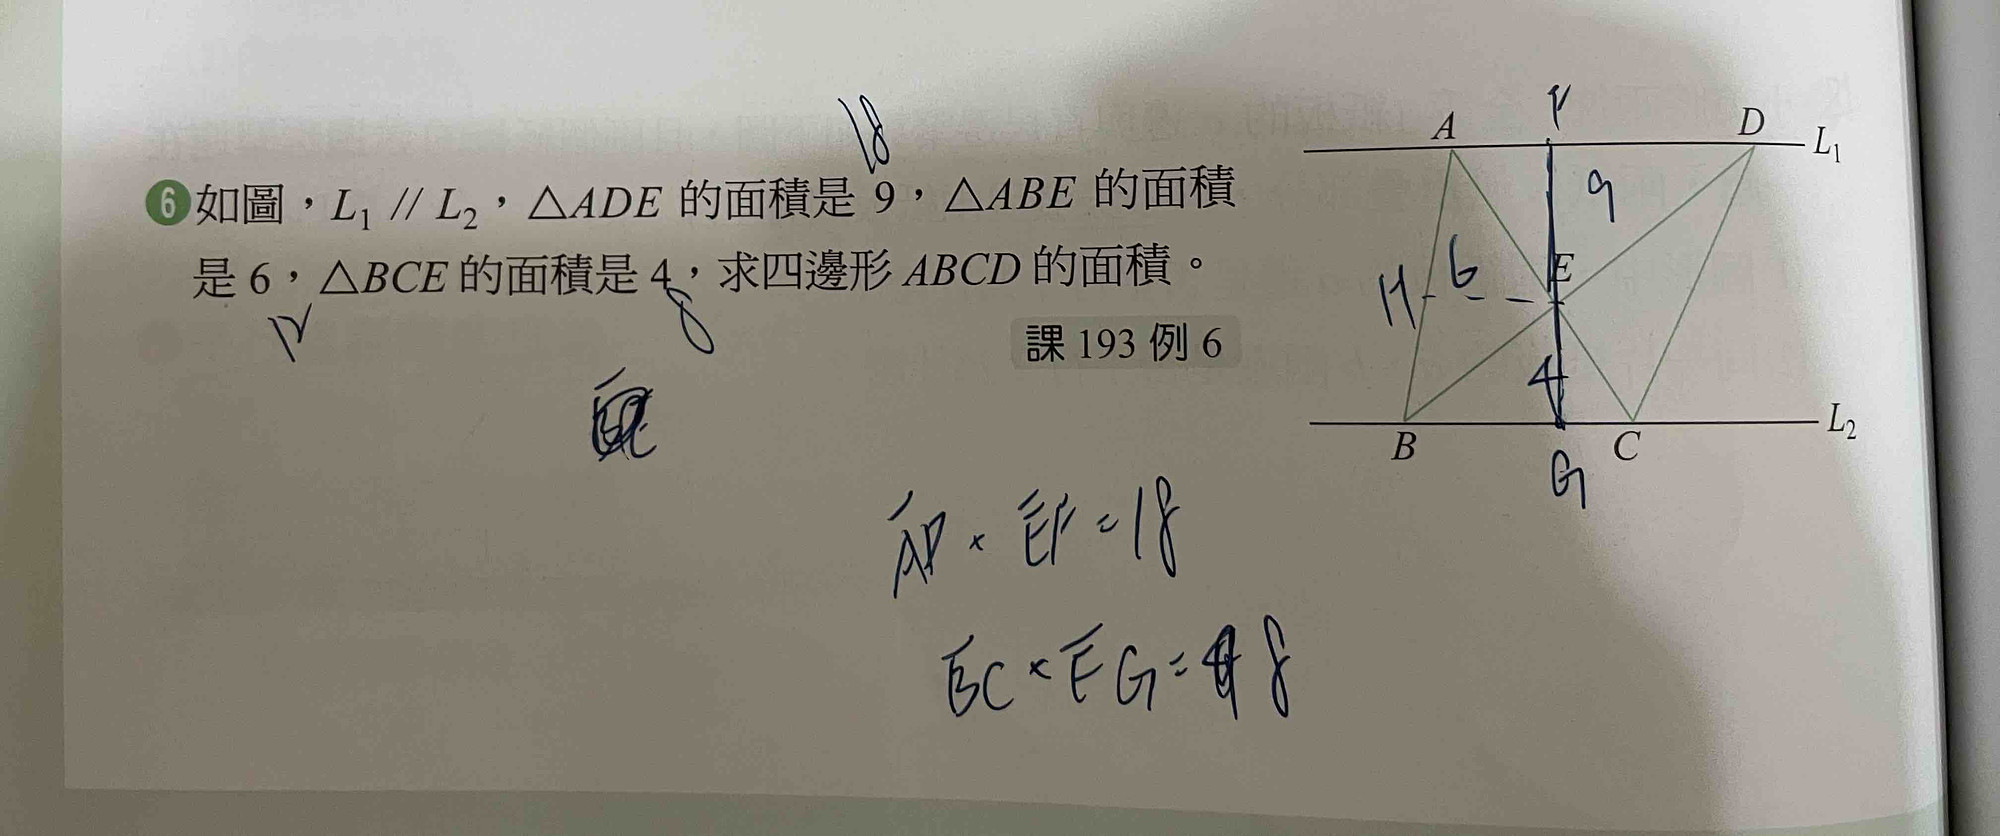 18
6 如圖，L₁ // L₂，△ADE 的面積是 9，△ABE 的面積
是 6，△BCE 的面積是 4，求四邊形 ABCD 的面積。
12
8
課 193 例 6
F
A
D
L₁
9
H
6
E
4
B
C
L₂
G
AD × EF = 18
BC × EG = 8